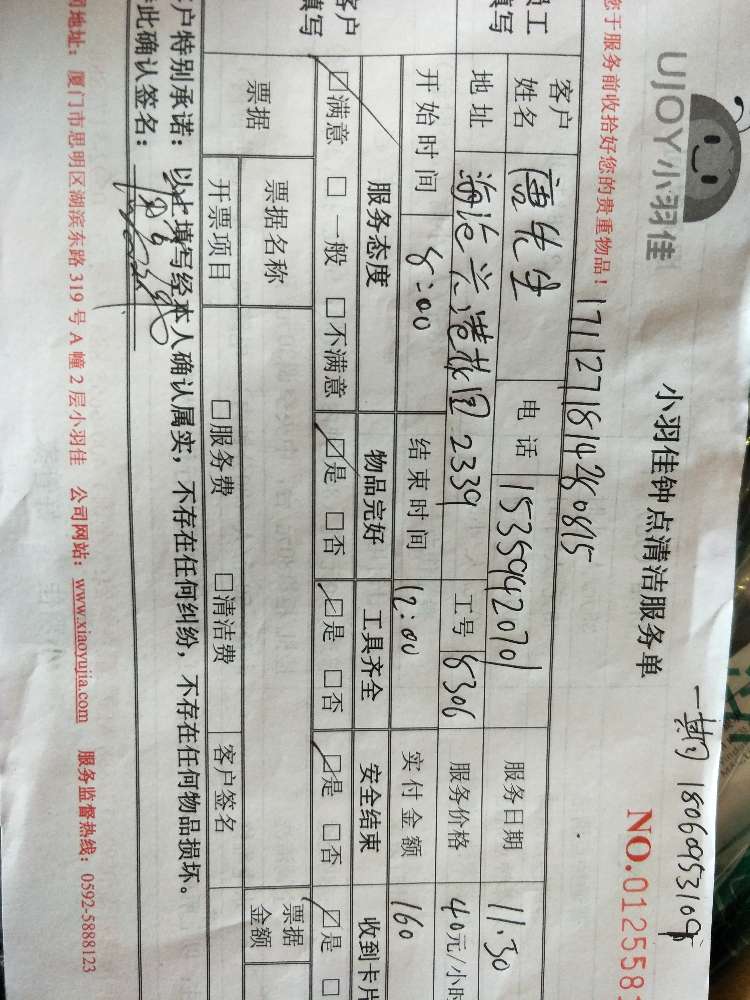 UJOY小羽佳
小羽佳钟点清洁服务单
一期 18069953109
NO.012558
您于服务前收拾好您的贵重物品！
1711271814280815
客户姓名 唐先生 电话 15359942070 服务日期 11.30
地址 海沧兴港花园2339 工号 8306 服务价格 40元/小时
开始时间 8:00 结束时间 12:00 实付金额 160
客户填写 服务态度 物品完好 工具齐全 安全结束 收到卡片
☑满意 □一般 □不满意 ☑是 □否 ☑是 □否 ☑是 □否 ☑是 □
票据 票据名称 票据金额
开票项目 □服务费 □清洁费 客户签名
客户特别承诺：以上填写经本人确认属实，不存在任何纠纷，不存在任何物品损坏。
此确认签名：
司地址：厦门市思明区湖滨东路 319 号 A 幢 2 层小羽佳 公司网站：www.xiaoyujia.com 服务监督热线：0592-5888123